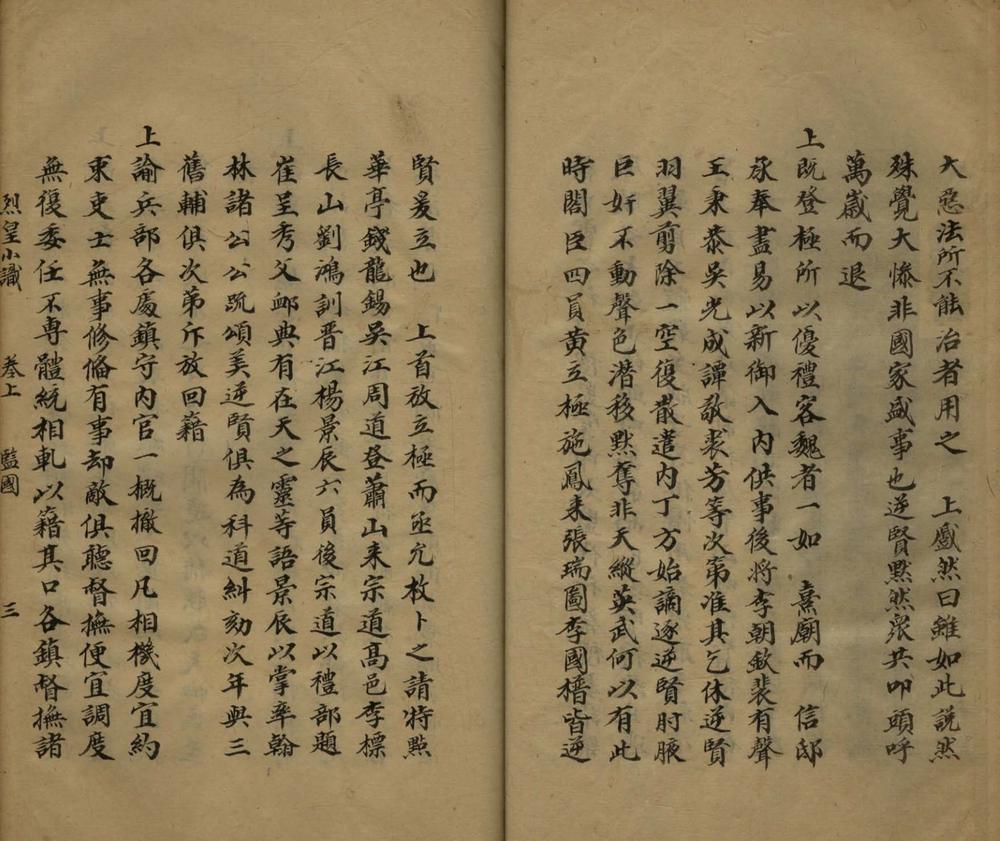 大惡法所不能治者用之　上愀然曰雖如此說然
殊覺大慘非國家盛事也逆賢默然衆共叩頭呼
萬歲而退
上既登極所以優禮客魏者一如　熹廟而　信邸
承奉盡易以新御入內供事後將李朝欽裴有聲
王秉恭吳光成譚敬裘芳等次第准其乞休逆賢
羽翼剪除一空復散遣內丁方始謫逐逆賢肘腋
巨奸不動聲色潛移默奪非天縱英武何以有此
時閣臣四員黃立極施鳳来張瑞圖李國𣚴皆逆
賢爰立也　上首放立極而亟允枚卜之請特點
華亭錢龍錫吳江周道登蕭山来宗道高邑李標
長山劉鴻訓晋江楊景辰六員後宗道以禮部題
崔呈秀父邮典有在天之靈等語景辰以掌翰
林諸公公疏頌美逆賢俱為科道糾劾次年與三
舊輔俱次第斥放回籍
上諭兵部各處鎮守內官一概撤回凡相機度宜約
束吏士無事修備有事却敵俱聽督撫便宜調度
無復委任不専體統相軋以籍其口各鎮督撫諸
烈皇小識　卷上　監國　三